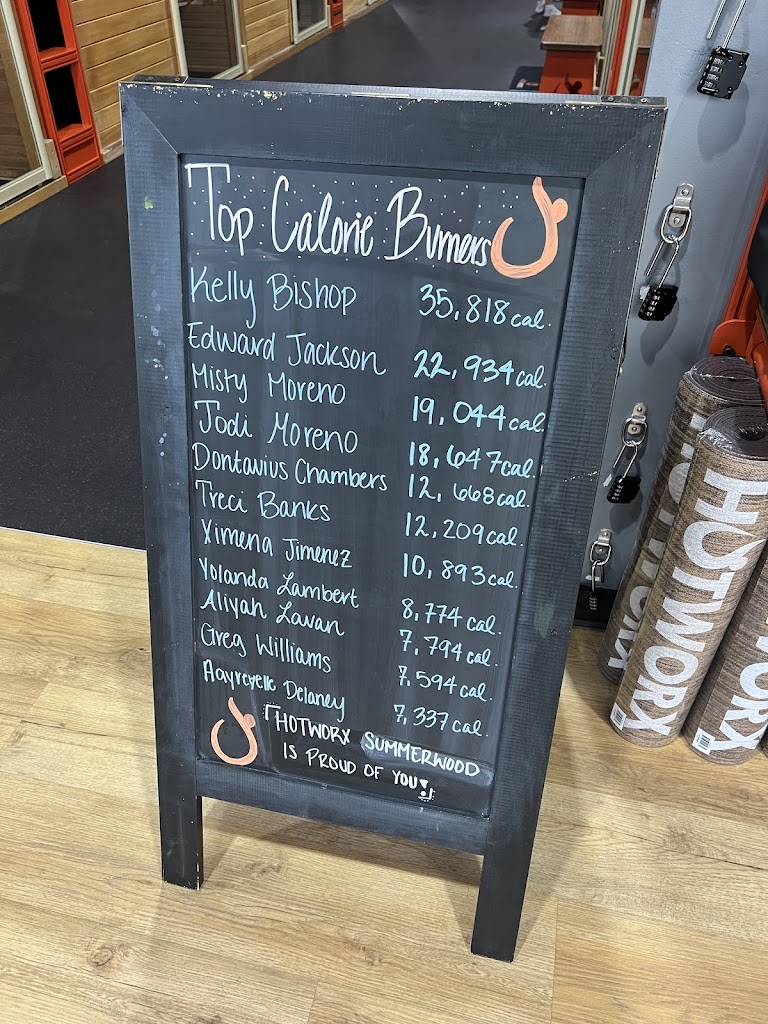 Top Calorie Burners
Kelly Bishop 35,818 cal.
Edward Jackson 22,934 cal.
Misty Moreno 19,044 cal.
Jodi Moreno 18,647 cal.
Dontavius Chambers 12,668 cal.
Treci Banks 12,209 cal.
Ximena Jimenez 10,893 cal.
Yolanda Lambert 8,774 cal.
Aliyah Lavan 7,794 cal.
Greg Williams 7,594 cal.
Delaney 7,337 cal.
HOTWORX SUMMERWOOD
IS PROUD OF YOU!
HOTWORX
HOTWORX